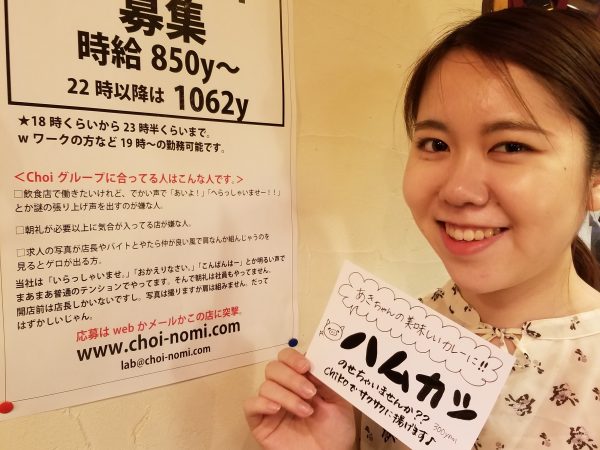 募集
時給 850y〜
22時以降は 1062y
★18時くらいから23時半くらいまで。
wワークの方など19時〜の勤務可能です。
＜Choiグループに合ってる人はこんな人です。＞
□飲食店で働きたいけれど、でかい声で「あいよ！」「へらっしゃいませー！！」
とか謎の張り上げ声を出すのが嫌な人。
□朝礼が必要以上に気合が入ってる店が嫌な人。
□求人の写真が店長やバイトとやたら仲が良い風で肩なんか組んじゃうのを
見るとゲロが出る方。
当社は「いらっしゃいませ。」「おかえりなさい。」「こんばんはー」とか明るい声で
まあまあ普通のテンションでやってます。そんで朝礼は社員もやってません。
開店前は店長しかいないですし、写真は撮りますが肩は組みません。だって
はずかしいじゃん。
応募は web かメールかこの店に突撃。
www.choi-nomi.com
lab@choi-nomi.com
あきちゃんの美味しいカレーに!!
ハムカツ
のせちゃいませんか??
300yen
CHIKOでサクサクに揚げます♪